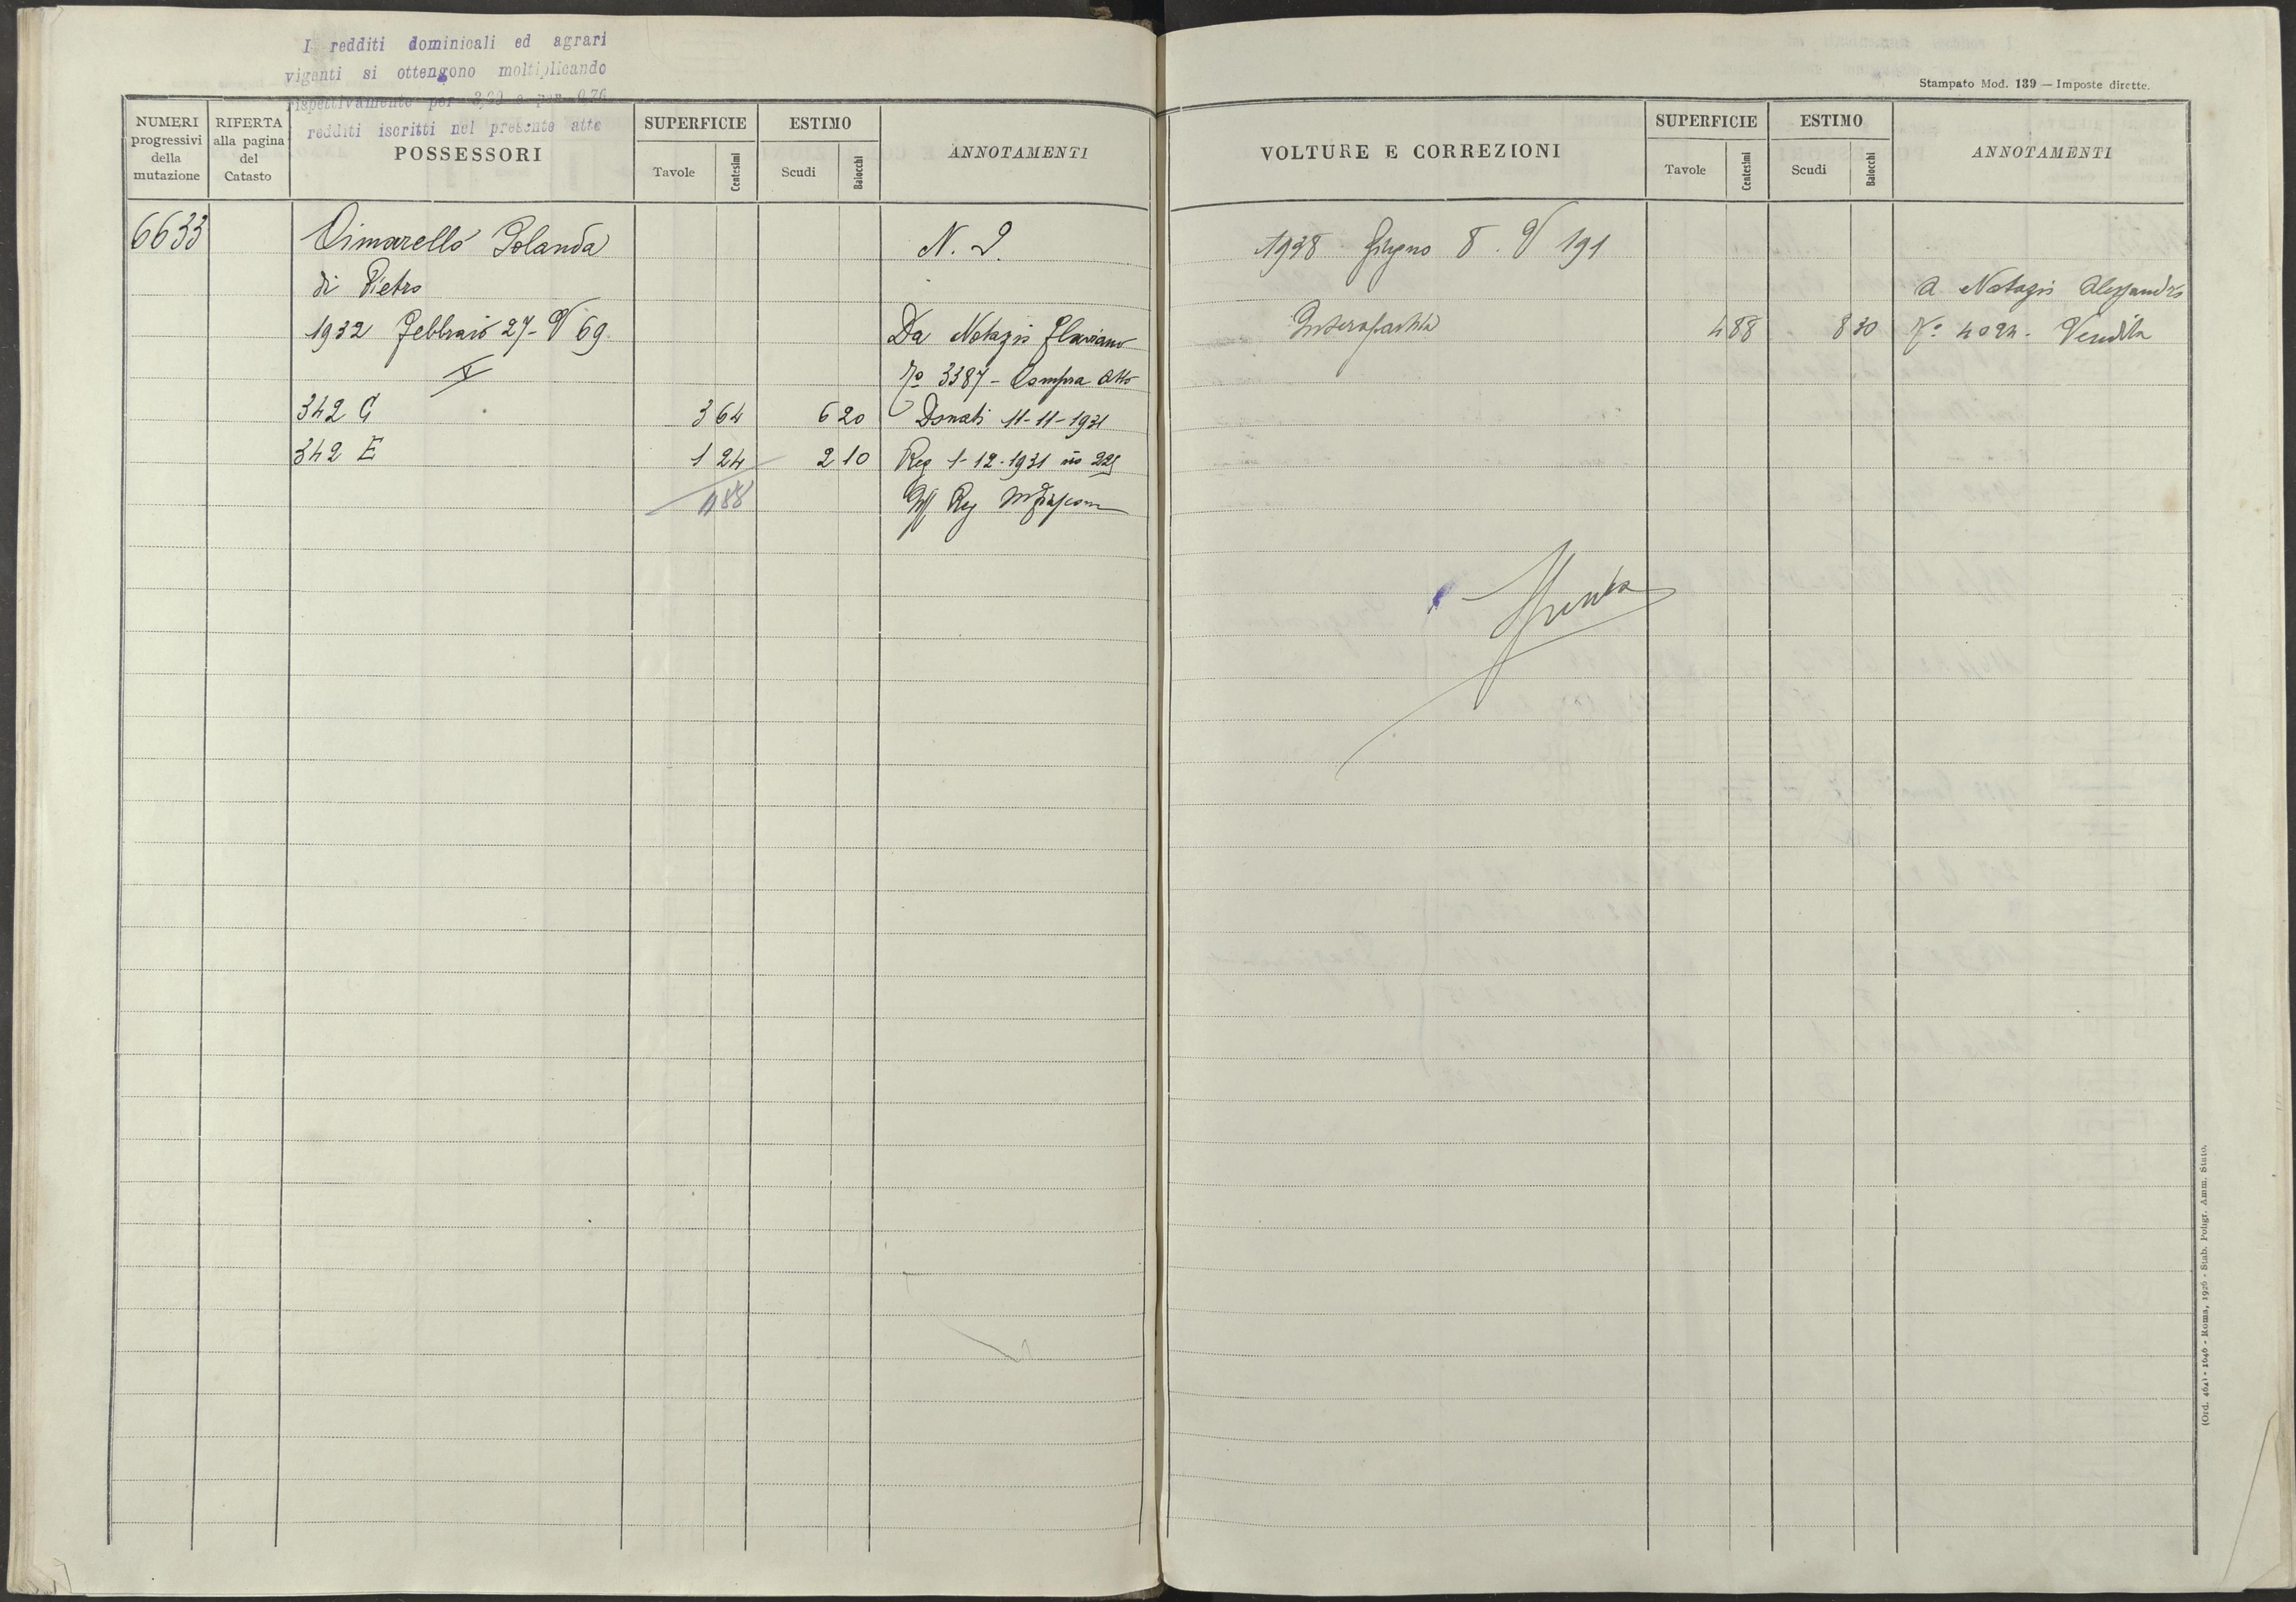 I redditi dominicali ed agrari
vigenti si ottengono moltiplicando
rispettivamente per 3,60 e per 0,76
redditi iscritti nel presente atto
Stampato Mod. 139 — Imposte dirette.
NUMERI progressivi della mutazione
RIFERTA alla pagina del Catasto
POSSESSORI
SUPERFICIE
Tavole
Centesimi
ESTIMO
Scudi
Baiocchi
ANNOTAMENTI
VOLTURE E CORREZIONI
SUPERFICIE
Tavole
Centesimi
ESTIMO
Scudi
Baiocchi
ANNOTAMENTI
6633
Cimarello Iolanda
N. 2.
di Pietro
1932 Febbraio 27 - V 69.
Da Natazzi Flaviano
V
No 3387 - Compra Atto
342 G 3 64 6 20 Donati 11-11-1931
342 E 1 24 2 10 Reg 1-12-1931 no 225
4 88
Uff Reg
1938 Giugno 8. V 191
A Natazzi Alessandro
Intera partita 4 88 8 30 No 4024 - Vendita
Spenta
(Ord. 464) - 1646 - Roma, 1926 - Stab. Poligr. Amm. Stato.